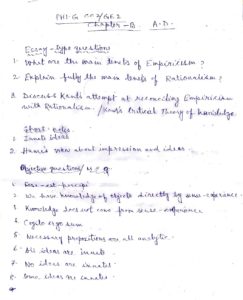 PHI-G CC2/GE2
Chapter-B. A.D.
Essay-type questions
1. What are the main tenets of Empiricism?
2. Explain fully the main tenets of Rationalism?
3. Discuss Kant's attempt at reconciling Empiricism
with Rationalism. / Kant's Critical Theory of knowledge.
Short notes.
1. Innate ideas
2. Hume's views about impression and ideas.
Objective questions/ M.C.Q
1. Esse est percipi
2. We have knowledge of objects directly by sense-experience.
3. Knowledge does not come from sense-experience
4. Cogito ergo sum
5. Necessary propositions are all analytic.
6. All ideas are innate.
7. No ideas are innate.
8. Some ideas are innate.